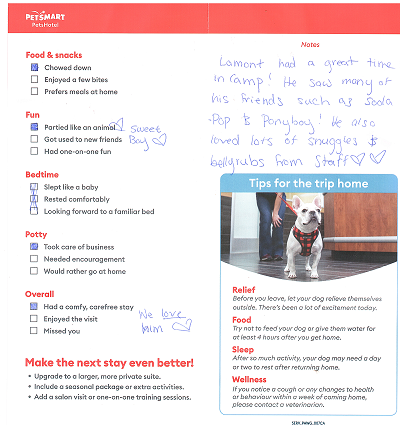 PETSMART
PetsHotel
Food & snacks
Chowed down
Enjoyed a few bites
Prefers meals at home
Fun
Partied like an animal
Got used to new friends
Had one-on-one fun
Sweet
Boy
Bedtime
Slept like a baby
Rested comfortably
Looking forward to a familiar bed
Potty
Took care of business
Needed encouragement
Would rather go at home
Overall
Had a comfy, carefree stay
Enjoyed the visit
Missed you
We love
him
Make the next stay even better!
• Upgrade to a larger, more private suite.
• Include a seasonal package or extra activities.
• Add a salon visit or one-on-one training sessions.
Notes
Lamont had a great time
in camp! He saw many of
his friends such as Soda
-Pop & Ponyboy! He also
loved lots of snuggles &
bellyrubs from Staff
Tips for the trip home
Relief
Before you leave, let your dog relieve themselves
outside. There's been a lot of excitement today.
Food
Try not to feed your dog or give them water for
at least 4 hours after you get home.
Sleep
After so much activity, your dog may need a day
or two to rest after returning home.
Wellness
If you notice a cough or any changes to health
or behaviour within a week of coming home,
please contact a veterinarian.